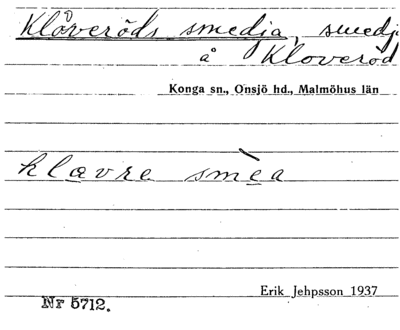 Klöveröds smedja, smedja
å Kloveröd
Konga sn., Onsjö hd., Malmöhus län
klævre smèa
Erik Jehpsson 1937
Nr 5712.